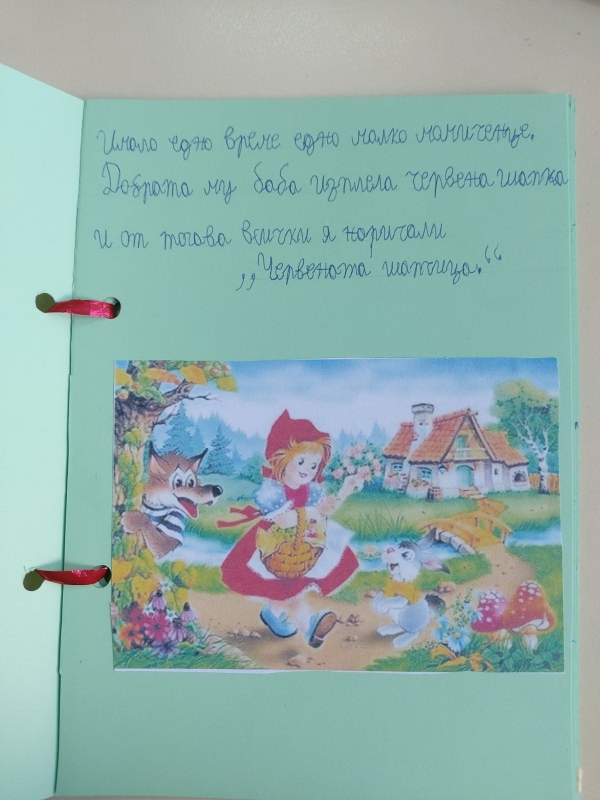 Имало едно време едно малко момиченце.
Добрата му баба изплела червена шапка
и от тогава всички я наричали
„Червената шапчица."